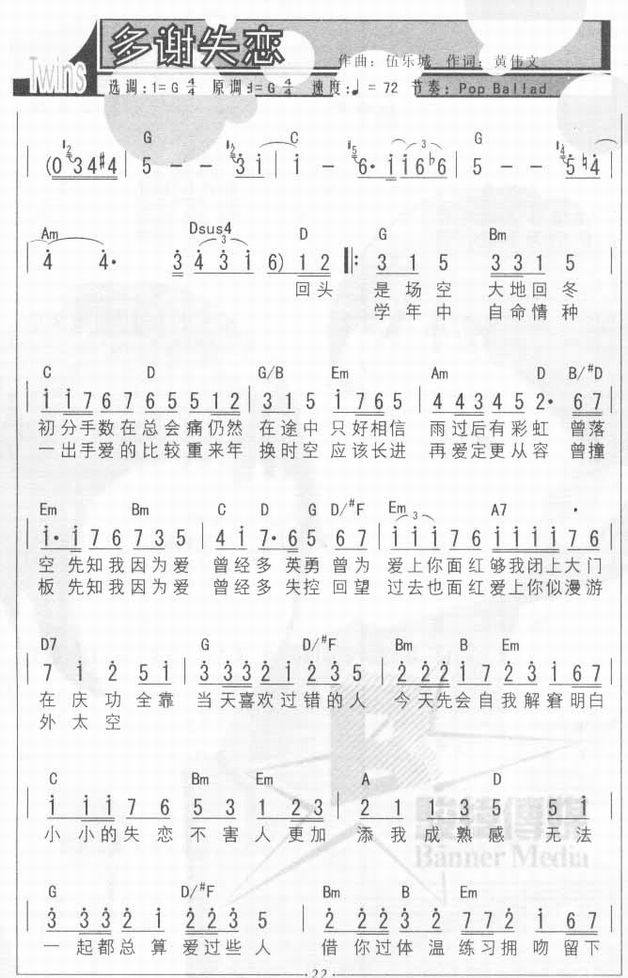 多谢失恋
Twins
作曲：伍乐城 作词：黄伟文
选调：1=G 4/4 原调：1=G 4/4 速度：♩=72 节奏：Pop Ballad
G C
(0 3 4 #4 5 - - 3 i i - 6· i i 6 b6 5 - - 5 4
Am Dsus4 D G Bm
4 4· 3 4 3 i 6) 1 2 3 1 5 3 3 1 5
回头 是场空 大地回冬
学年中 自命情种
C D G/B Em Am D B/#D
i i 7 6 7 6 5 5 1 2 3 1 5 i 7 6 5 4 4 3 4 5 2· 6 7
初分手数在总会痛仍然 在途中 只好相信 雨过后有彩虹 曾落
一出手爱的比较重来年 换时空 应该长进 再爱定更从容 曾撞
Em Bm C D G D/#F Em A7
i· i 7 6 7 3 5 4 i 7· 6 5 6 7 i i i 7 6 i i i i 7 6
空 先知我因为爱 曾经多 英勇曾为 爱上你面红够我闭上大门
板 先知我因为爱 曾经多 失控回望 过去也面红爱上你似漫游
D7 G D/#F Bm B Em
7 i 2 5 i 3 3 3 2 i 2 3 5 2 2 2 i 7 2 3 i 6 7
在庆功全靠 当天喜欢过错的人 今天先会自我解窘明白
外太空
C Bm Em A D
i i i 7 6 5 3 1 2 3 2 1 1 3 5 5 i
小小的失恋不害人更加 添我成熟感 无法
Banner Media
G D/#F Bm B Em
3 3 3 2 i 2 2 3 5 2 2 2 3 2 7 7 2 i 6 7
一起都总算爱过些人 借你过体温练习拥吻留下
22